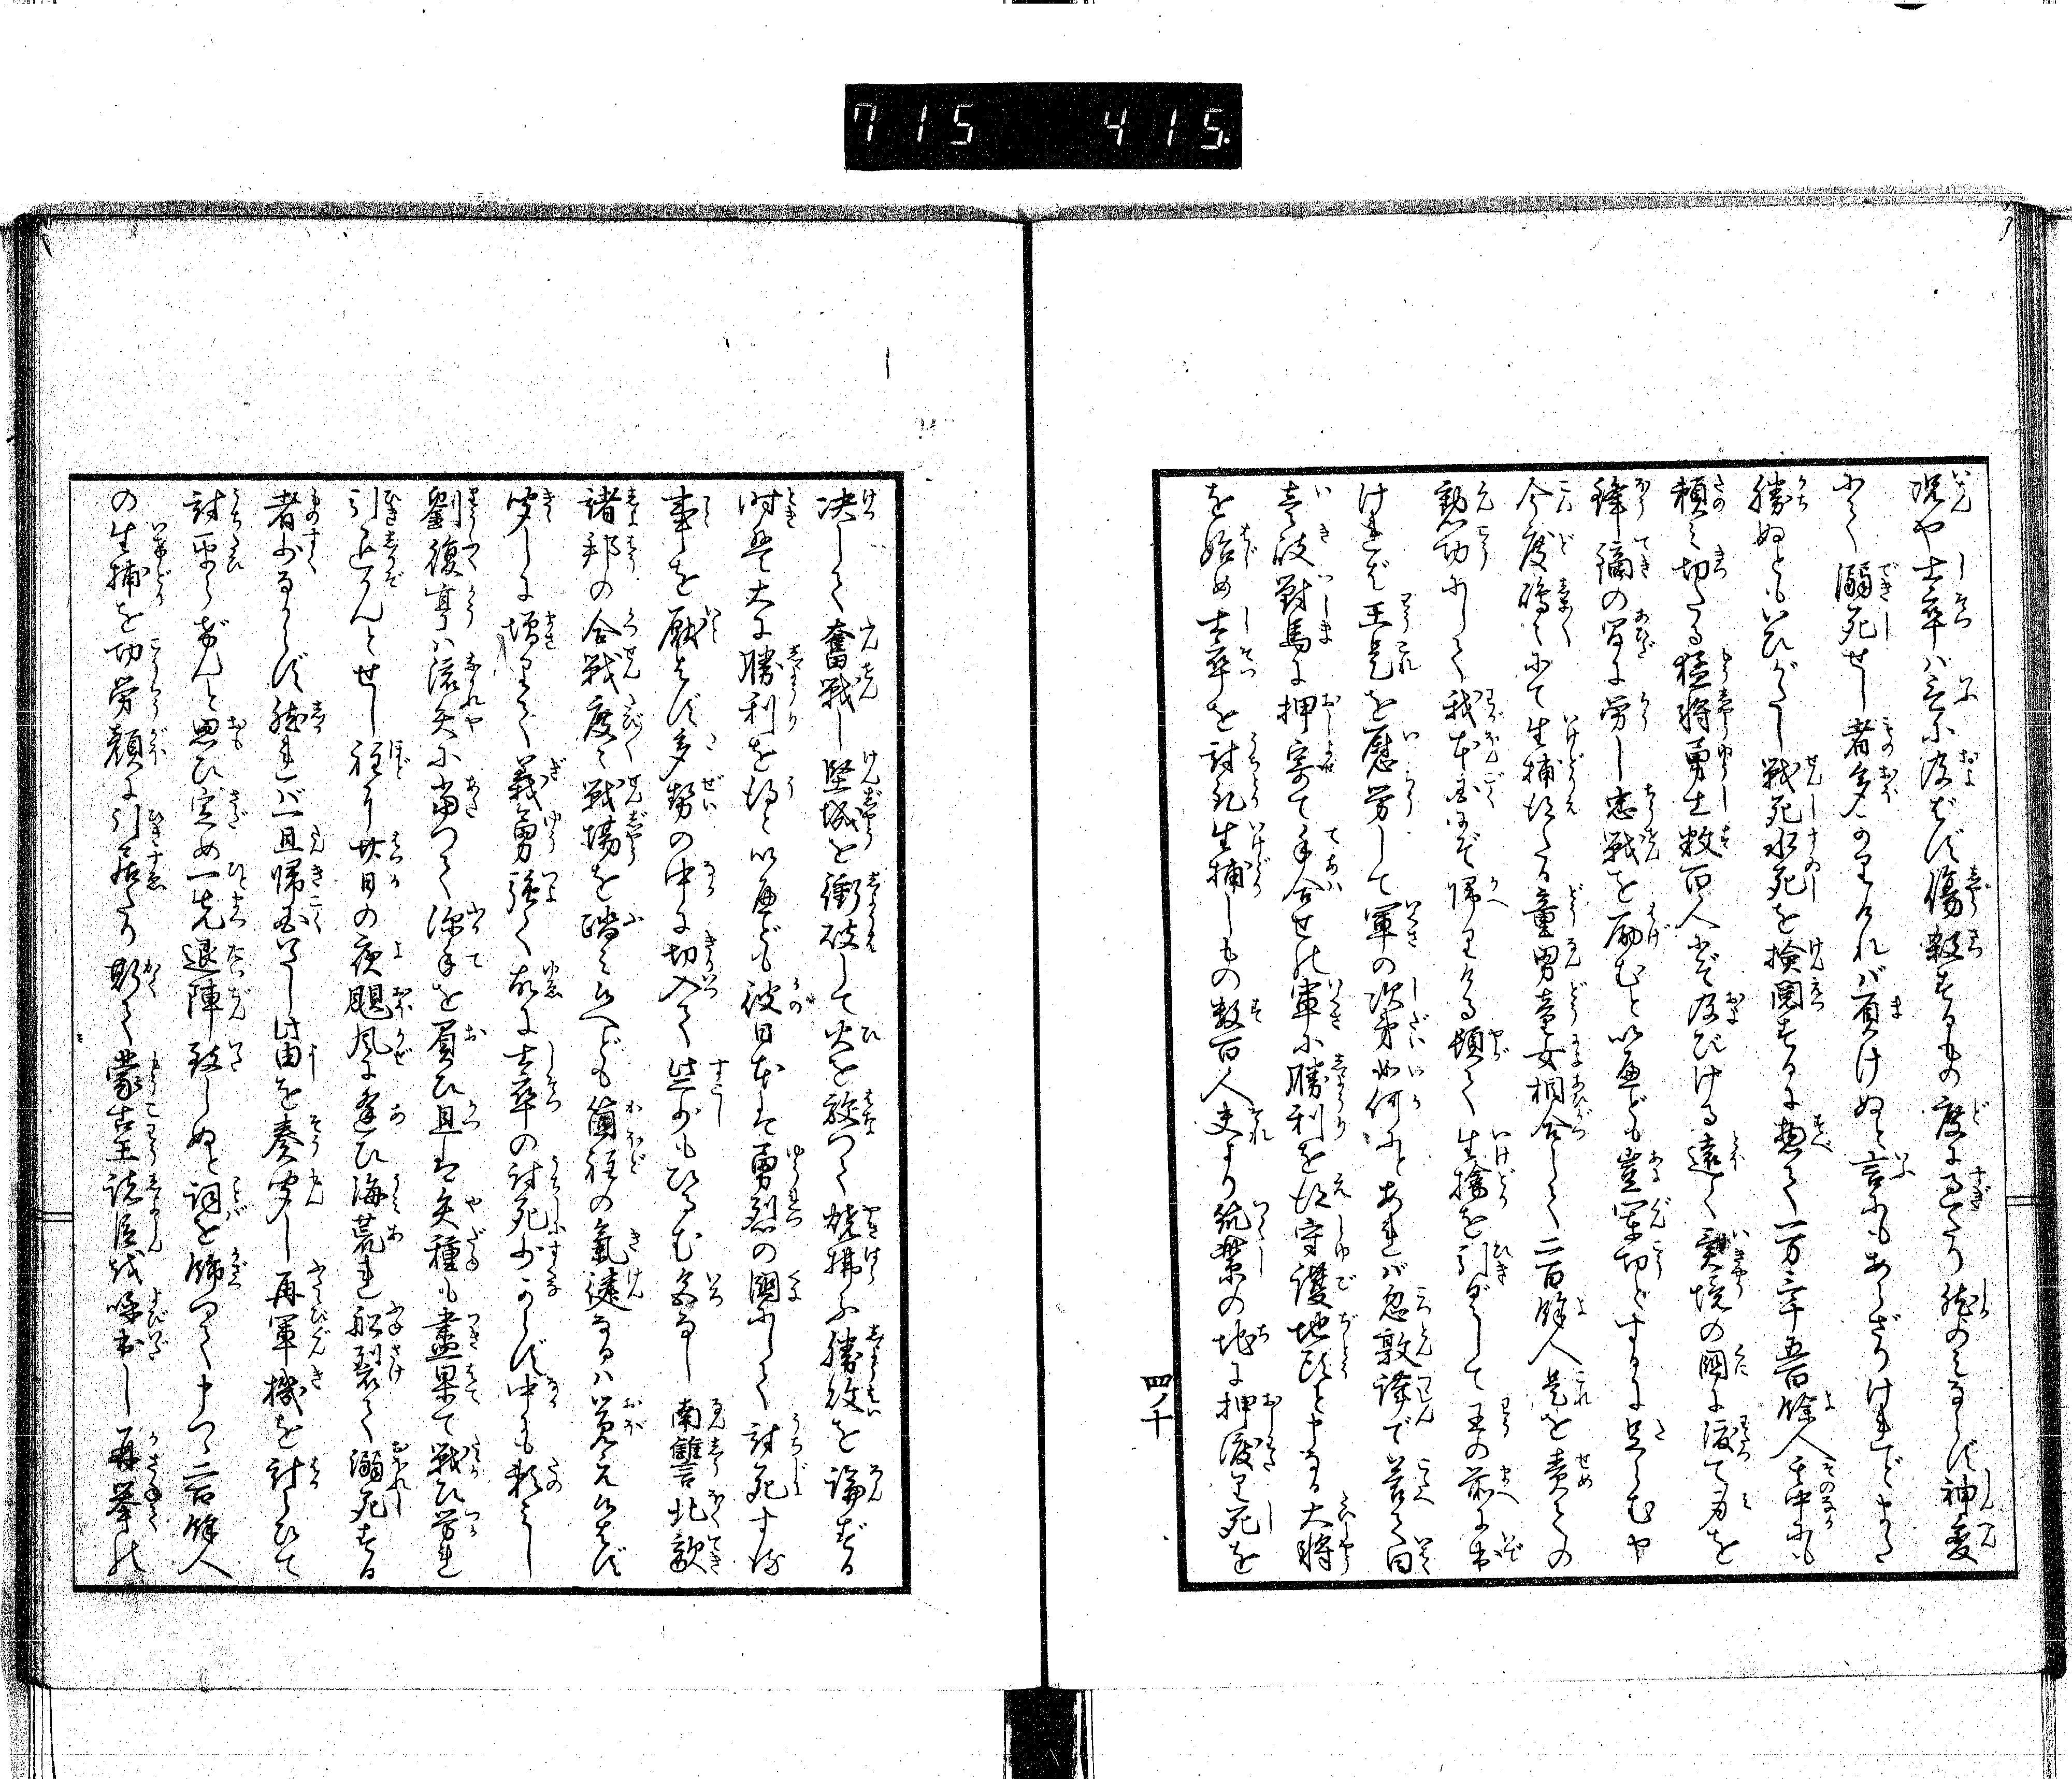 715 415.
況や士卒ハ言に及ばず傷殺するもの度に過たり然のみならず神変
にて溺死せし者多かりければ負けぬと言にもあらざりけれどまた
勝ぬともいひがたし戦死水死を検閲するに惣て一万三千五百餘人其中にも
頼み切たる猛将勇士数百人に及びける遠く異境の国に渡て身を
鋒鏑の間に労し忠戦を励むと以へども豈軍功とするに足らむや
今度嶋々にて生捕得たる童男童女相合して二百餘人是を責ての
勲功にして我本国にぞ帰りける頓て生擒を引ずして王の前に出
けれど王是を慰労して軍の次第如何にとあれバ忽敦謹で答て曰
壱岐對馬に押寄て手合せの軍に勝利を得守護地頭と申なる大将
を始め士卒を討取生捕しもの数百人夫より筑紫の地に押渡り死を
四ノ十
决して奮戦し堅城を衝破して火を放つて焼拂ふ勝敗を論ずる
時ハ大に勝利を得と以へども彼日本は勇烈の国にして討死する
事を厭はず多勢の中に切入て些少もひるむ色なし南讐北敵
諸邦の合戦度々戦場を踏み候へども箇程の氣健なるハ覚え候はず
聞しに増りて義勇強く故に士卒の討死少からず中にも頼みし
劉復亨ハ流矢に當つて深手を負ひ且は矢種も盡果て戦ひ労れ
引退かんとせし程に廿日の夜颶風に逢ひ海荒れ船裂て溺死する
者少なからず然れバ一旦帰国いたし此由を奏聞し再軍機を討らひて
討平らげんと思ひ定め一先退陣致しぬと詞を飾つて申つゝ二百餘人
の生捕を功労顔に引居たり斯て蒙古王諸臣を呼出し再挙の